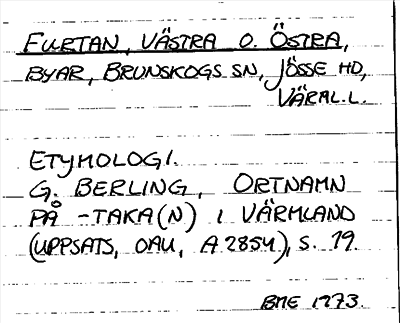 FURTAN, VÄSTRA O. ÖSTRA,
BYAR, BRUNSKOGS SN, JÖSSE HD,
VÄRML.L.
ETYMOLOGI.
G. BERLING, ORTNAMN
PÅ -TAKA(N) I VÄRMLAND
(UPPSATS, OAU, A 2854), S. 19.
BME 1973.